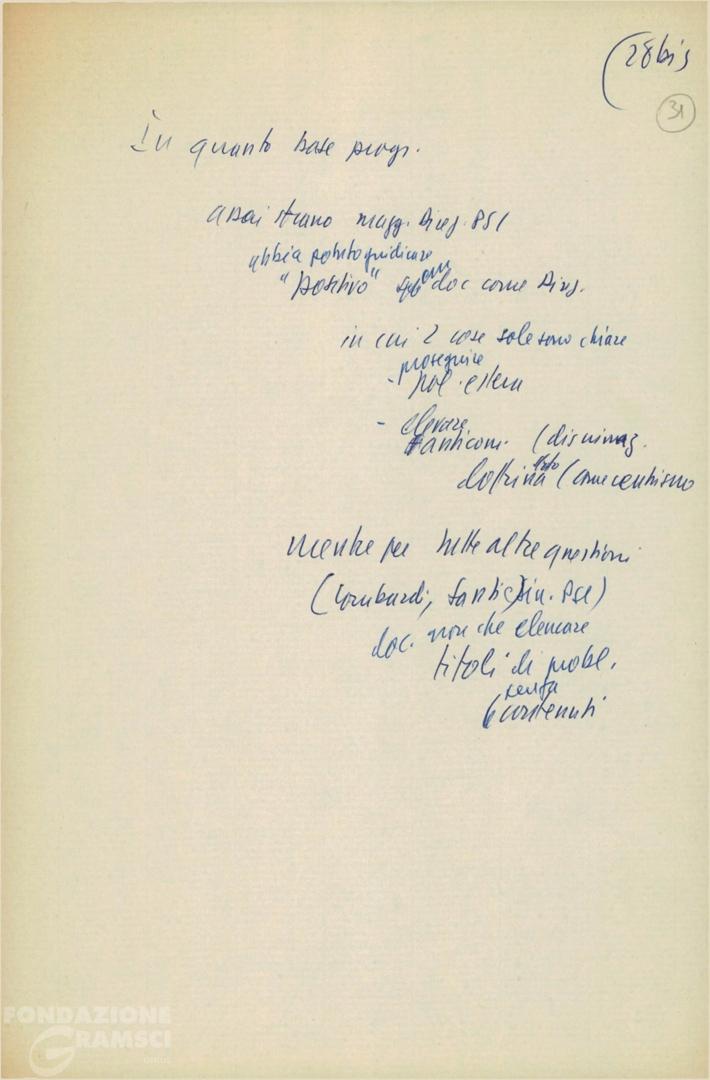 (28bis
31
In quanto base progr.
assai strano magg. Direz. PSI
abbia potuto giudicare
"positivo" un doc come Direz.
in cui 2 cose sole sono chiare
proseguire
- pol. estera
- elevare
anticom. (discriminaz.
dottrina (come centrismo
mentre per tutte altre questioni
(Lombardi, Santi, sin. PSI)
doc. non che elencare
titoli di probl.
senza
contenuti
FONDAZIONE
GRAMSCI